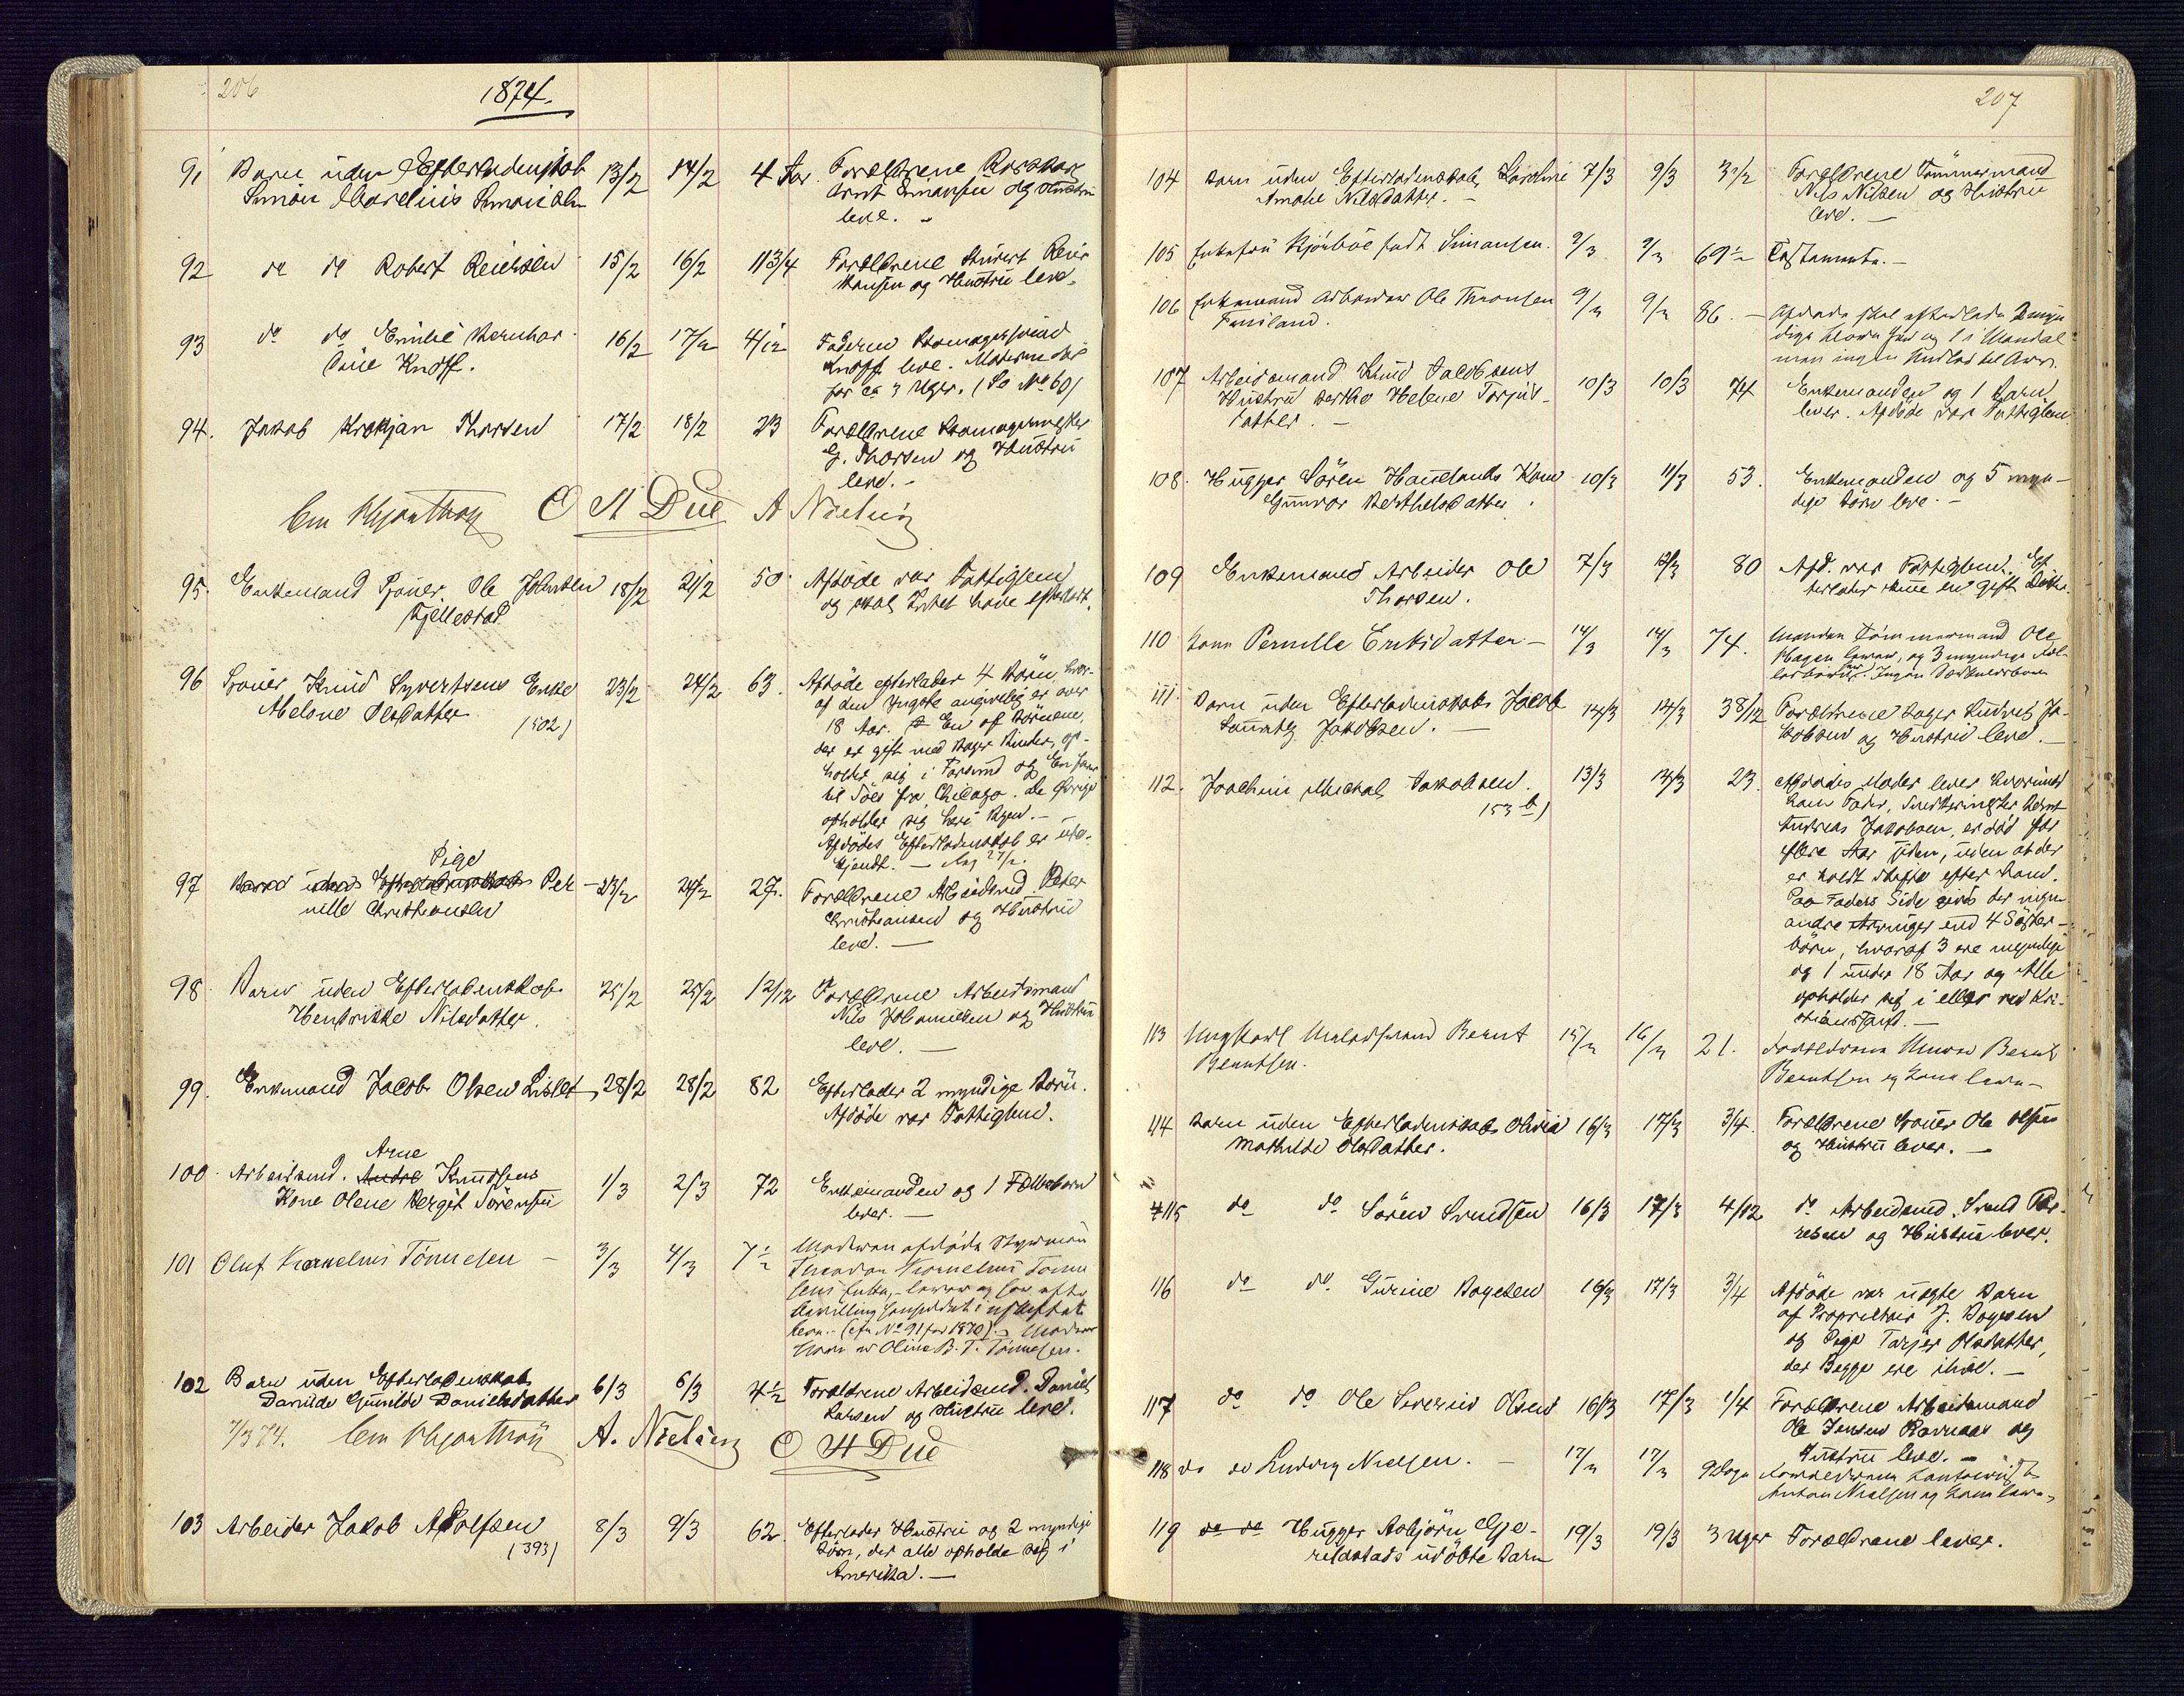 206
1874.
91 Barn uden Efterladenskab 13/2 14/2 4 Aar. Forældrene
Simon Marelius Simonsen Arnt Simonsen og Hustru
leve. -
92 do do Robert Reiersen 15/2 16/2 1 13/4 Forældrene Sivert Reier
Hansen og Hustru leve.
93 do do Emilie Bernhar- 16/2 17/2 4/12 Faderen Skomagersvend
dine Knoff. Knoff leve. Moderen død
for ca 3 Uger. (So No 60)
94. Jakob Kristian Thorsen 17/2 18/2 23 Forældrene Skomagermester
G. Thorsen og Hustru
leve. -
O H Due A Nielsen
95. Enkemand Snuer. Ole Johnsen 18/2 21/2 50 Afdøde var Fattiglem
Fjellestad og skal Intet have efterladt.
96 Knud Syvertsens Enke 23/2 24/2 63. Afdøde efterlader 4 Børn, hvor-
Abelone Olsdatter af den yngste angivelig er over
(502) 18 Aar. En af Børnene,
der er gift med Bager op-
holder sig i Farsund og En farer
til Søes fra Chicago. De Øvrige
opholder sig her i Byen. -
Afdødes Efterladenskab er ube-
kjendt. -
Pige
97 Barn uden Efterladenskab Per- 23/2 24/2 27. Forældrene Arbeidsmd. Peter
nille Christiansen Christiansen og Hustru
leve. -
98 Barn uden Efterladenskab 25/2 25/2 1 2/12 Forældrene Arbeidsmand
Hendrikke Nilsdatter. Nils Johannesen og Hustru
leve. -
99. Enkemand Jacob Olsen Lislet 28/2 28/2 82 Efterlader 2 myndige Børn.
Afdøde var Fattiglem.
Arne
100 Arbeidsmd. Andre Knudsens 1/3 2/3 72 Enkemanden og 1 Fællesbarn
Kone Olene Bergit Sørensen lever. -
101 Oluf Kornelius Tönnesen - 3/3 4/3 7 1/2 Moderen afdøde Styrmand
Kornelius Tönne
sens Enke, - lever og har efter
Bevilling hensiddet i uskiftet
Bo. - (cfr No 91 for 1870). - Moderens
Navn er Oline B. T. Tönnesen.
102 Barn uden Efterladenskab 6/3 6/3 4 1/2 Forældrene Arbeidsmd. Daniel
Danilde Gunilde Danielsdatter Larsen og Hustru leve.
7/3 74. A. Nielsen O H Due
103 Arbeider Jakob Adolfsen 8/3 9/3 62. Efterlader Hustru og 2 myndige
(393) Børn, der alle opholde sig i
Amerika. -
207
104 Barn uden Efterladenskab, Karoline 7/3 9/3 3 1/2 Forældrene Tömmermand
Amalie Nilsdatter. - Nils Nilsen og Hustru
leve. -
105 Enkefru Kjönböe født Simonsen. 9/3 9/3 69 1/2 Testamente. -
106 Enkemand Arbeider Ole Thronsen 9/3 9/3 86. - Afdøde skal efterlade 2 myn
dige Børn her og 1 i Mandal
men ingen Midler til Arv.
107 Arbeidsmand Knud Jacobsens 10/3 10/3 74 Enkemanden og 1 Barn
Hustru Berthe Helene Torjus- lever. Afdøde var Fattiglem.
datter. -
108. Hugger Sören Hauelands Kone 10/3 11/3 53. Enkemanden og 5 myn-
Gunvor Berthelsdatter. dige Börn leve. -
109 Enkemand Arbeider Ole 7/3 12/3 80 Afd. var Fattiglem. Ef
Thorsen. terlader kun en gift Datter.
110 Kone Pernille Eriksdatter - 14/3 14/3 74. Manden Tömmermand Ole
Hagen lever, og 3 myndige Fæl-
lesbörn. Ingen Særkuldsbørn
111. Barn uden Efterladenskab Jacob 14/3 14/3 3 8/12 Forældrene Bager Ludvig Ja-
Jakobsen. - kobsen og Hustru leve. -
112. Joachim Mickal Jakobsen. 13/3 14/3 23. Afdødes Moder lever hvorimod
153 b) hans Fader, Bernt
Andreas Jakobsen, er död for
flere Aar siden, uden at der
er holdt Skifte efter ham.
Paa Faders Side gives der ingen
andre Arvinger end 4 Søster-
börn, hvoraf 3 ere myndige
og 1 under 18 Aar og Alle
opholder sig i eller ved Kri-
stianssand. -
113 Ungkarl Malersvend Bernt 15/3 16/3 21. Forældrene Murer Bernt
Berntsen. Berntsen og Kone leve -
114 Barn uden Efterladenskab Olivia 16/3 17/3 3/4. Forældrene Snuer Ole Olsen
Mathilde Olsdatter. og Hustru lever. -
115 do do Sören Svendsen 16/3 17/3 4/12 do Arbeidsmd. Svend
og Hustru lever.
116 do do Gurine Boyesen 16/3 17/3 3/4 Afdöde var uægte Barn
af Proprietair J. Boyesen
og Pige Tarjer Olsdatter,
der Begge ere ilive. -
117 do do Ole Severin Olsen 16/3 17/3 1/4 Forældrene Arbeidsmand
Ole Jensen Ravnaas og
Hustru leve. -
118 do do Ludvig Nielsen. - 17/3 17/3 9 Dage Forældrene
Anton Nielsen og Kone leve -
119 do do Hugger Asbjörn Gje- 19/3 19/3 3 Uger Forældrene lever.
relastads udöbte Barn